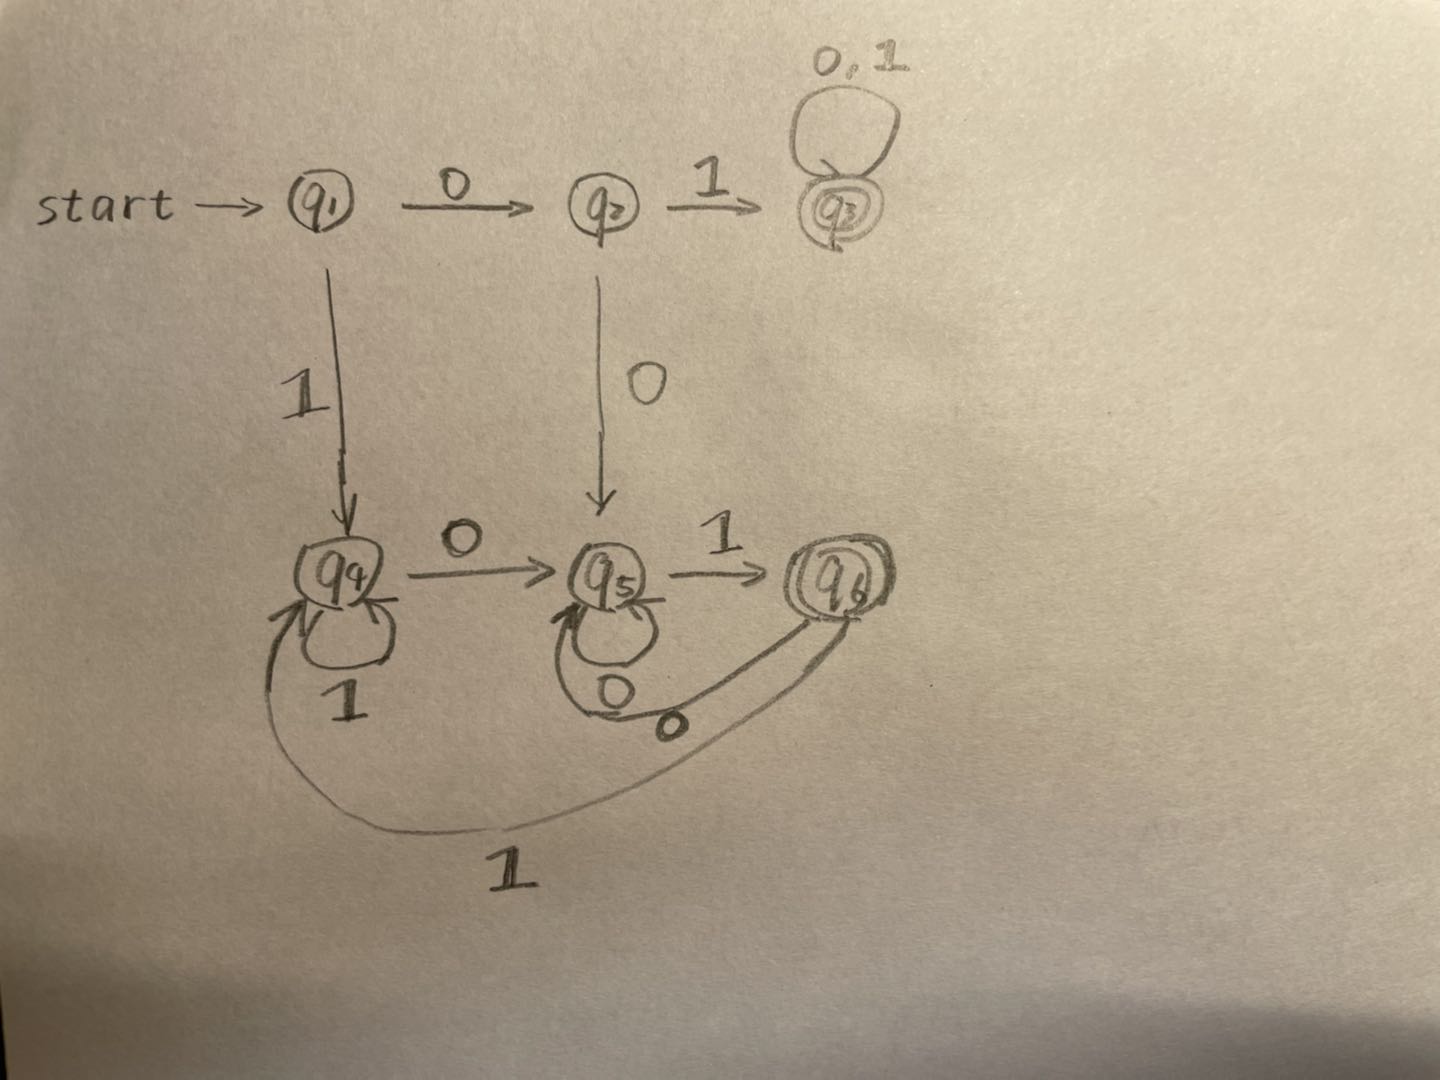 0,1
start → q1 0 q2 1 q3
1 0
q4 0 q5 1 q6
1 0 0
1